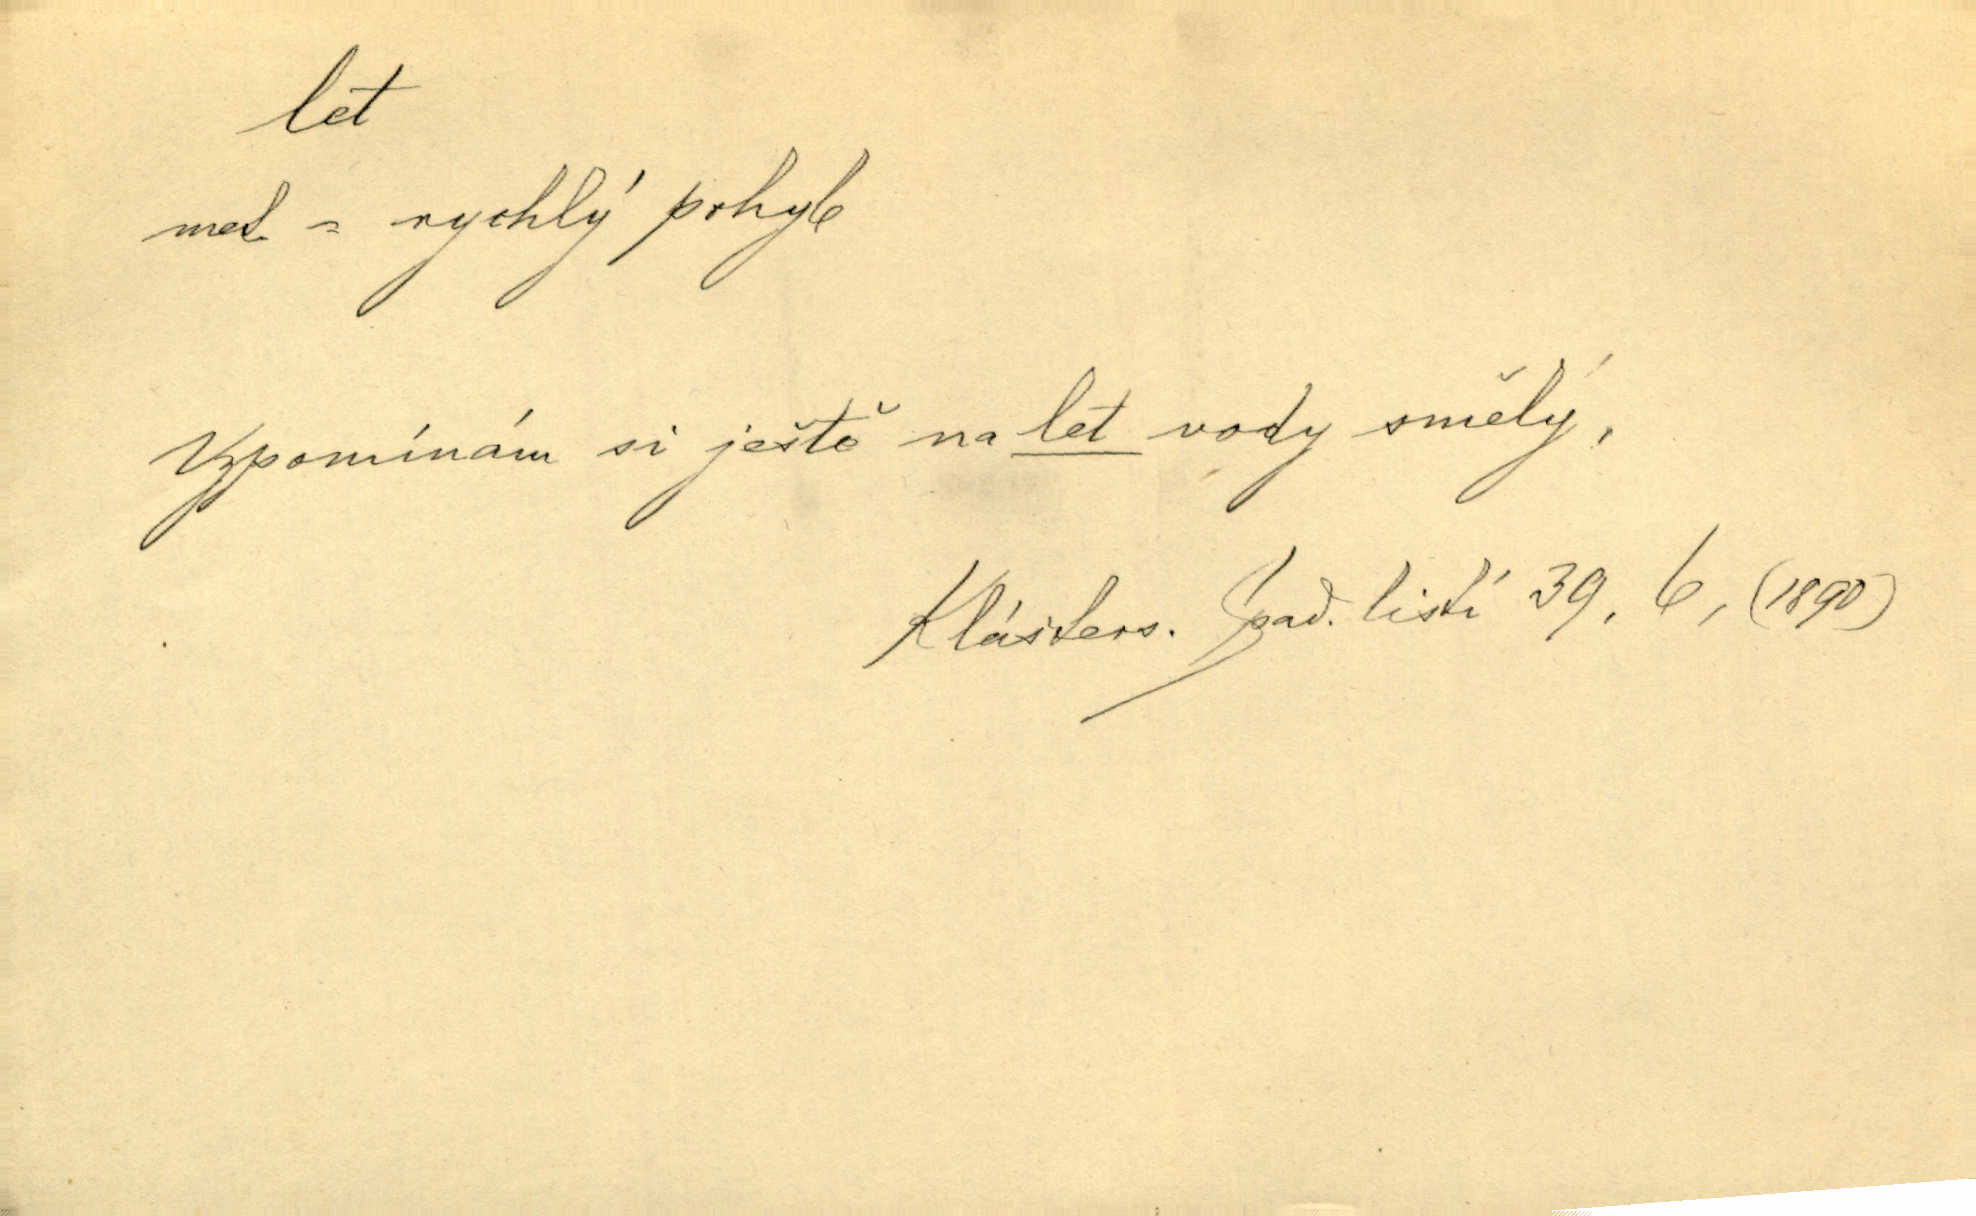 let
met. = rychlý pohyb
Vzpomínám si ještě na let vody smělý,
Klásters. Spad. listí 39, 6, (1890)